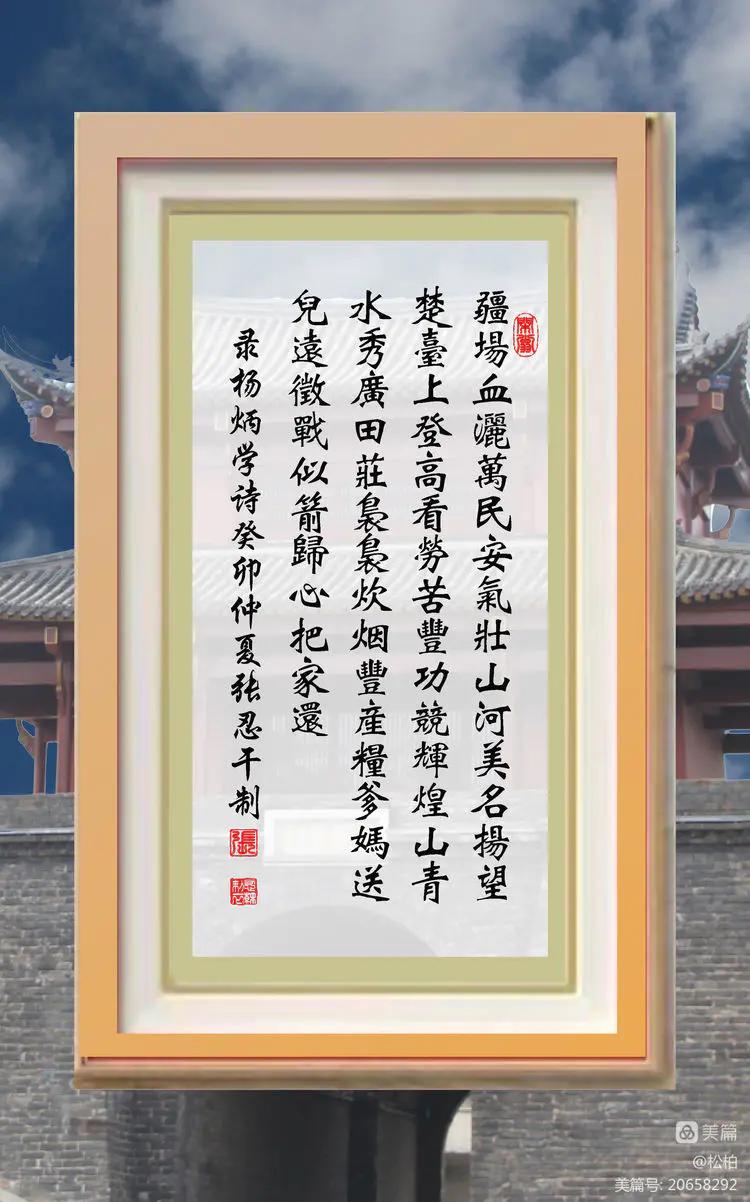 疆場血灑萬民安氣壯山河美名揚望
楚臺上登高看勞苦豐功競輝煌山青
水秀廣田莊裊裊炊烟豐産糧爹媽送
兒遠徵戰似箭歸心把家還
录杨炳学诗癸卯仲夏张忍干制
張
美篇
@松柏
美篇号: 20658292